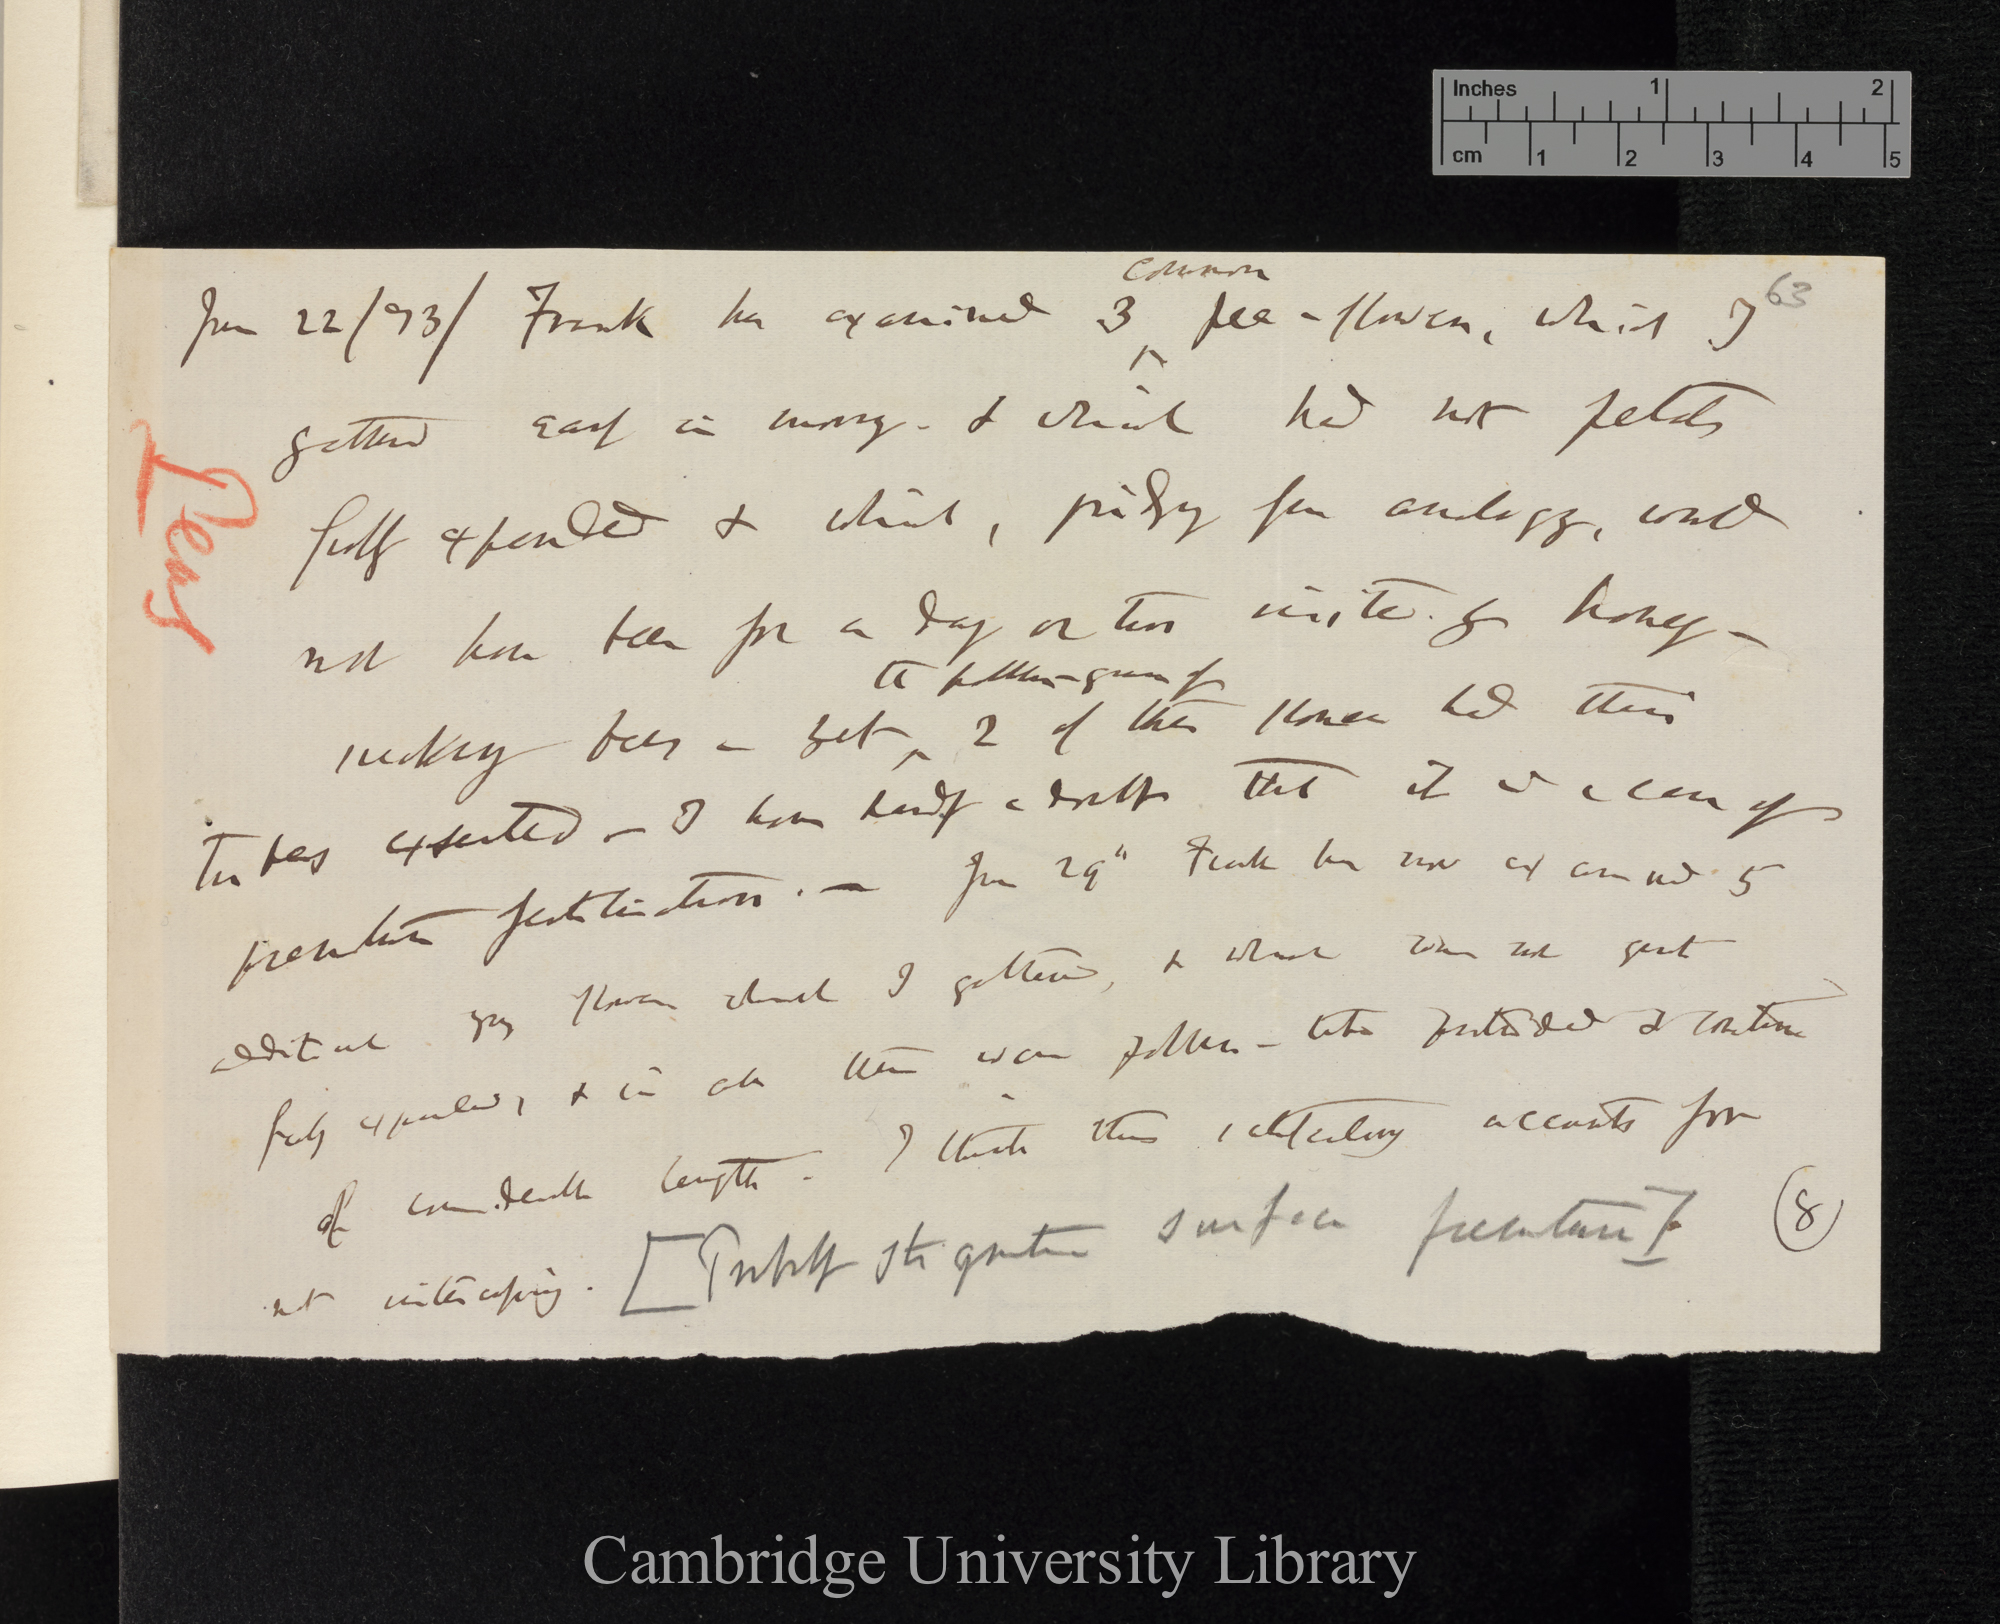 Inches 1 2
cm 1 2 3 4 5
63
common
June 22/73/ Frank has examined 3 ^ pea-flowers, which I
gathered early in morng. & which had not petals
fully expanded & which, judging from analogy, would
not have been for a day or two visited by honey-
the pollen-grains of
sucking bees – yet ^ 2 of these flowers had their
tubes exserted – I have hardly a doubt that it is a case of
premature fertilisation. — June 29th Frank has now examined 5
additional young flowers which I gathered, & which were not quite
fully expanded, & in all there were pollen-tubes protruded &
of considerable length. I think this satisfactorily accounts for
not intercrossing. [Probably stigmatic surface premature]
8
Peas
Cambridge University Library